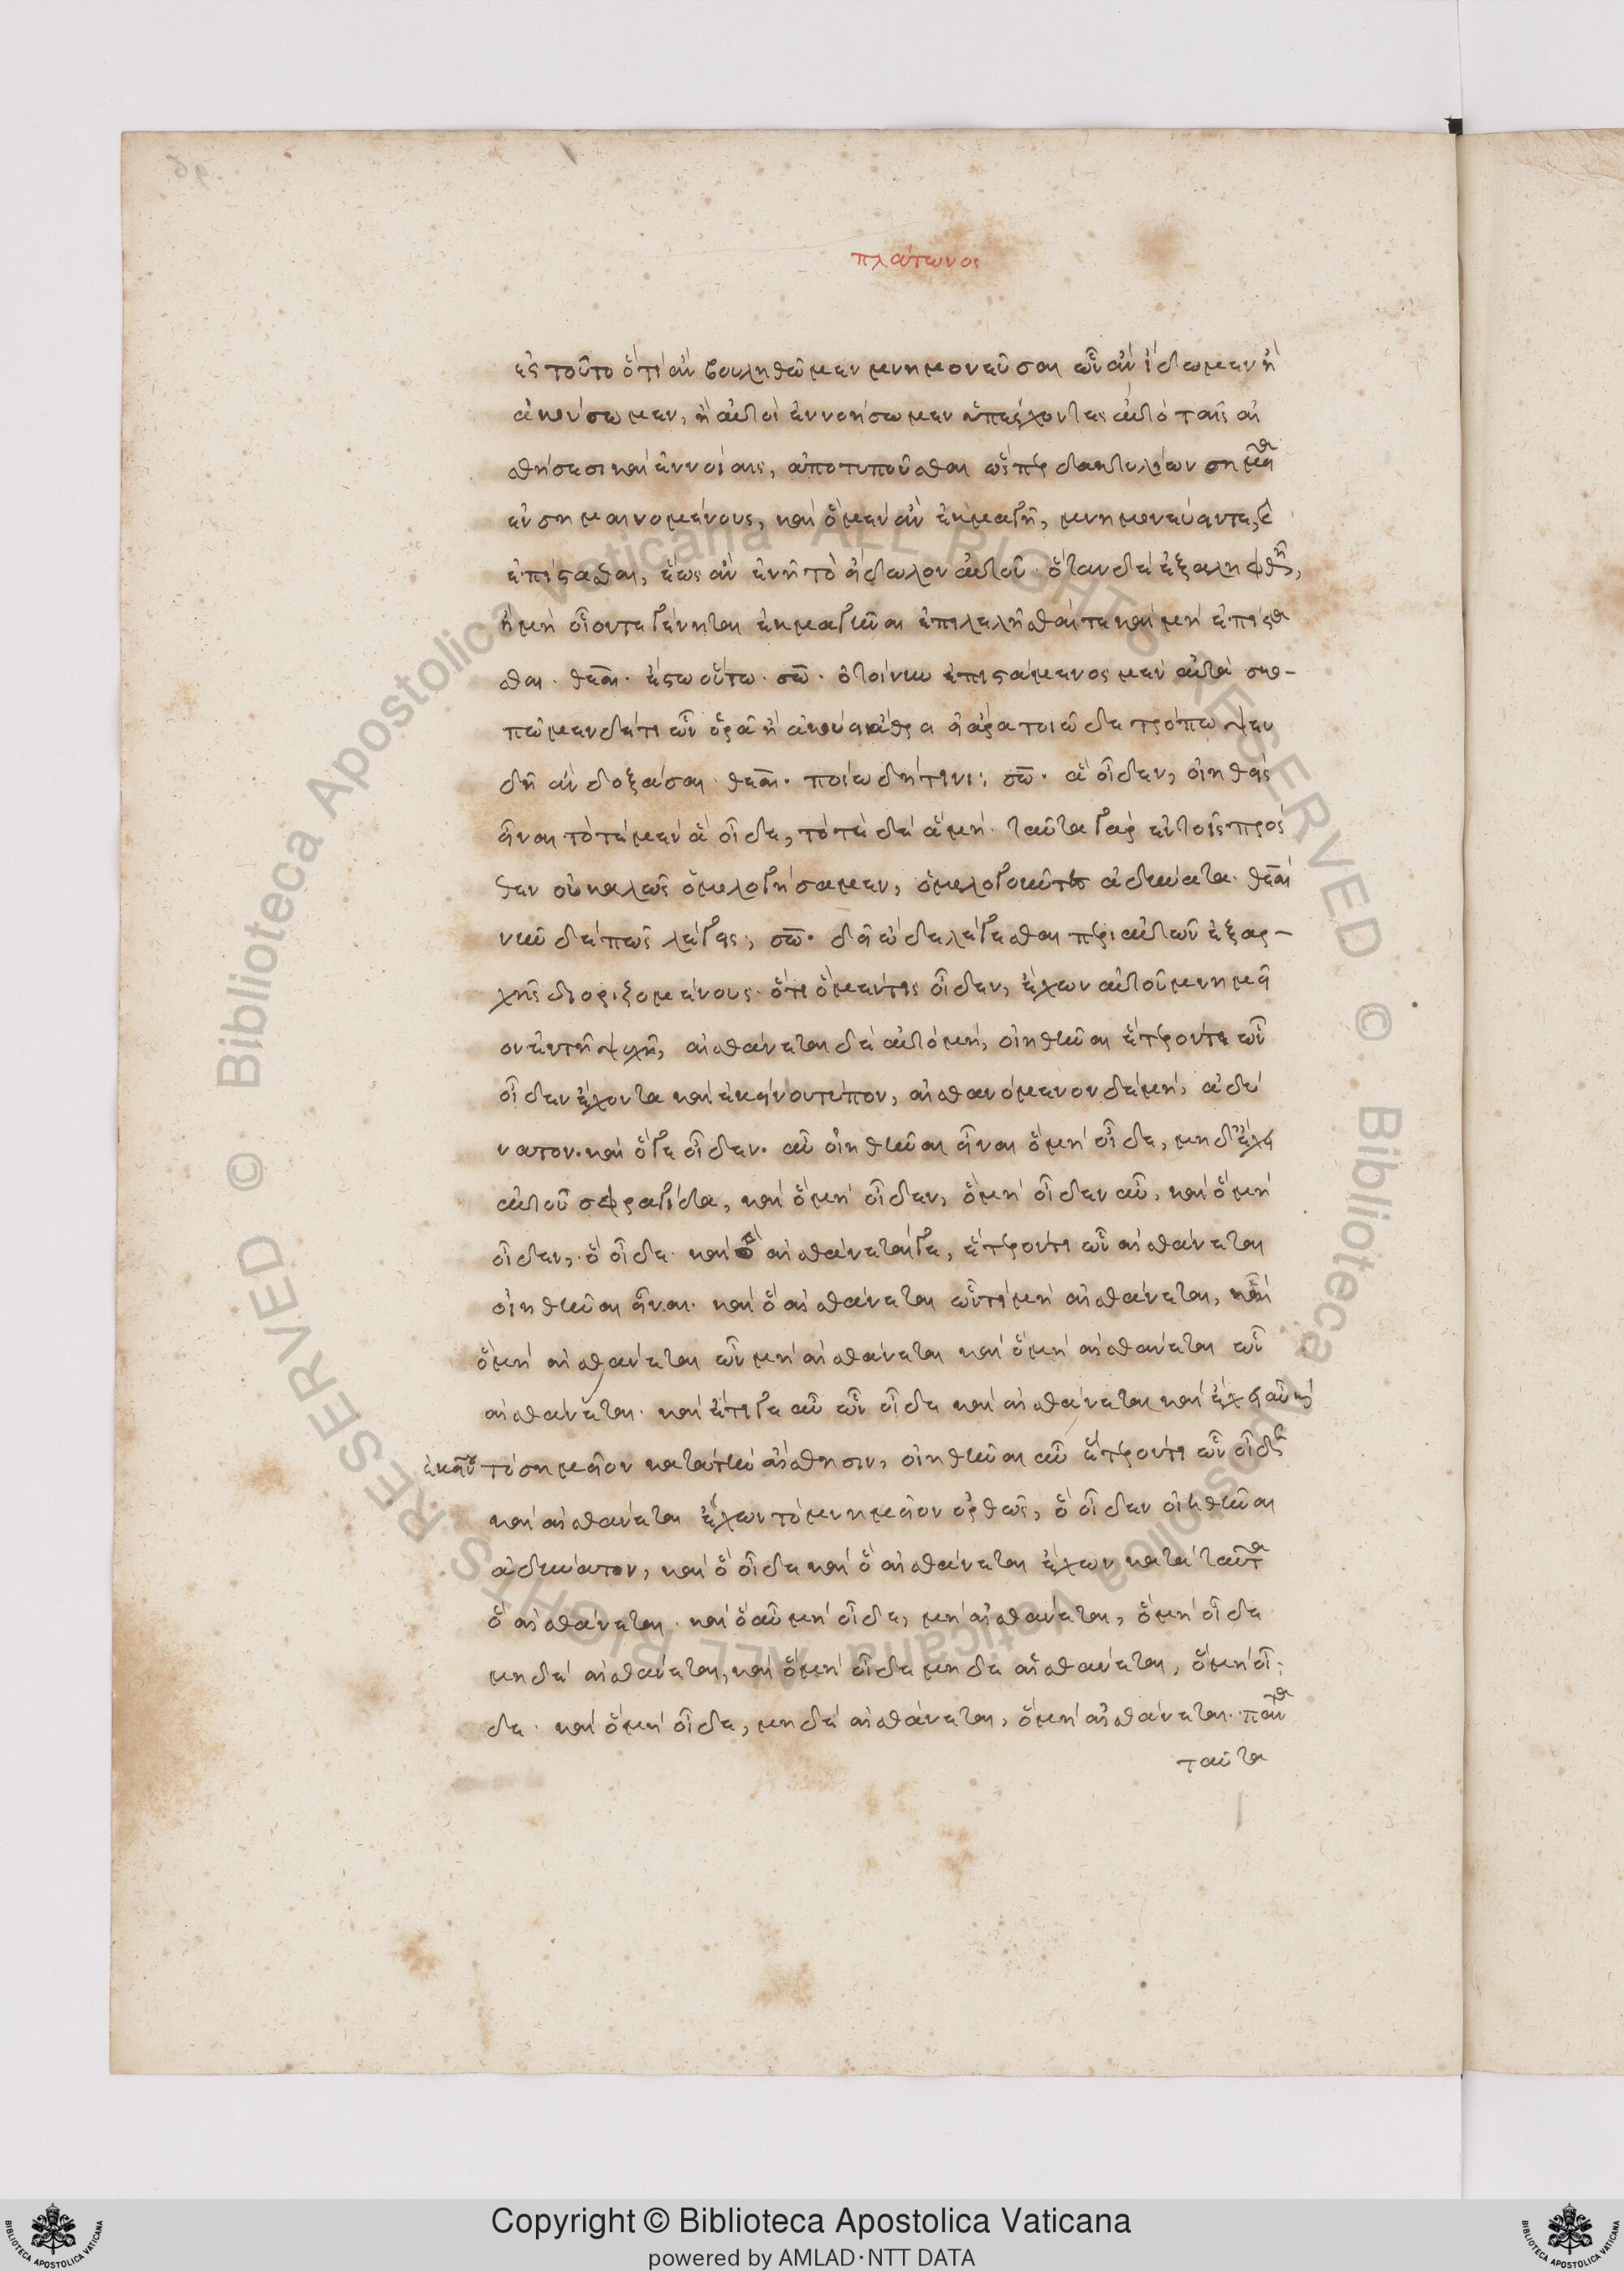 πλάτωνος
ἐς τοῦτο ὅτι ἂν βουληθῶμεν μνημονεῦσαι ὧν ἂν ἴδωμεν ἢ
ἀκούσωμεν, ἢ αὐτοὶ ἐννοήσωμεν ὑπέχοντες αὐτὸ ταῖς αἰ
σθήσεσι καὶ ἐννοίαις, ἀποτυποῦσθαι ὥσπερ δακτυλίων σημεῖα
ἐνσημαινομένους, καὶ ὃ μὲν ἂν ἐκμαγῇ, μνημονεύειν τε, καὶ
ἐπίστασθαι, ἕως ἂν ἐνῇ τὸ εἴδωλον αὐτοῦ· ὅταν δὲ ἐξαλειφθῇ,
ἢ μὴ οἷόν τε γένηται ἐκμαγῆναι ἐπιλελῆσθαί τε καὶ μὴ ἐπίστα
σθαι. θεαι. ἔστω οὕτω. σω. ὁ τοίνυν ἐπιστάμενος μὲν αὐτὰ σκο-
πῶμεν δέ τι ὧν ὁρᾷ ἢ ἀκούει ἄθρει εἰ ἄρα τοιῷδε τρόπῳ ψευ
δῆ ἂν δοξάσαι. θεαι. ποίῳ δή τινι; σω. ἃ οἶδεν, οἰηθεὶς
εἶναι τοτὲ μὲν ἃ οἶδε, τοτὲ δὲ ἃ μή. ταῦτα γὰρ ἐν τοῖς πρόσ
θεν οὐ καλῶς ὁμολογήσαμεν, ὁμολογοῦντες ἀδύνατα. θεαι.
νῦν δὲ πῶς λέγεις; σω. δεῖ ὧδε λέγεσθαι περὶ αὐτῶν ἐξ ἀρ-
χῆς διοριζομένους. ὅτι ὃ μέν τις οἶδεν, ἔχων αὐτοῦ μνημεῖ
ον ἐν τῇ ψυχῇ, αἰσθάνεται δὲ αὐτὸ μή, οἰηθῆναι ἕτερόν τι ὧν
οἶδεν ἔχοντα καὶ ἐκείνου τύπον, αἰσθανόμενον δὲ μή, ἀδύ
νατον. καὶ ὅ γε οἶδεν. αὖ οἰηθῆναι εἶναι ὃ μὴ οἶδε, μηδ' ἔχει
αὐτοῦ σφραγίδα, καὶ ὃ μὴ οἶδεν, ὃ μὴ οἶδεν αὖ, καὶ ὃ μὴ
οἶδεν, ὃ οἶδε. καὶ ὃ αἰσθάνεταί γε, ἕτερόν τι ὧν αἰσθάνεται
οἰηθῆναι εἶναι. καὶ ὃ αἰσθάνεται ὧν τι μὴ αἰσθάνεται, καὶ
ὃ μὴ αἰσθάνεται ὧν μὴ αἰσθάνεται καὶ ὃ μὴ αἰσθάνεται ὧν
αἰσθάνεται. καὶ ἔτι γε αὖ ὧν οἶδε καὶ αἰσθάνεται καὶ ἔχει αὖ
ἐκείνου τὸ σημεῖον κατὰ τὴν αἴσθησιν, οἰηθῆναι αὖ ἕτερόν τι ὧν οἶδε
καὶ αἰσθάνεται ἔχων τὸ μνημεῖον ὀρθῶς, ὃ οἶδεν οἰηθῆναι
ἀδύνατον, καὶ ὃ οἶδε καὶ ὃ αἰσθάνεται ἔχων κατὰ ταῦτα
ὃ αἰσθάνεται. καὶ ὃ αὖ μὴ οἶδε, μὴ αἰσθάνεται, ὃ μὴ οἶδε
μηδὲ αἰσθάνεται, καὶ ὃ μὴ οἶδε μηδὲ αἰσθάνεται, ὃ μὴ οἶ
δε. καὶ ὃ μὴ οἶδε, μηδὲ αἰσθάνεται, ὃ μὴ αἰσθάνεται. πάντα
ταῦτα
© Biblioteca Apostolica Vaticana ALL RIGHTS RESERVED © Biblioteca Apostolica Vaticana ALL RIGHTS RESERVED
Copyright © Biblioteca Apostolica Vaticana
powered by AMLAD·NTT DATA
BIBLIOTECA APOSTOLICA VATICANA
BIBLIOTECA APOSTOLICA VATICANA